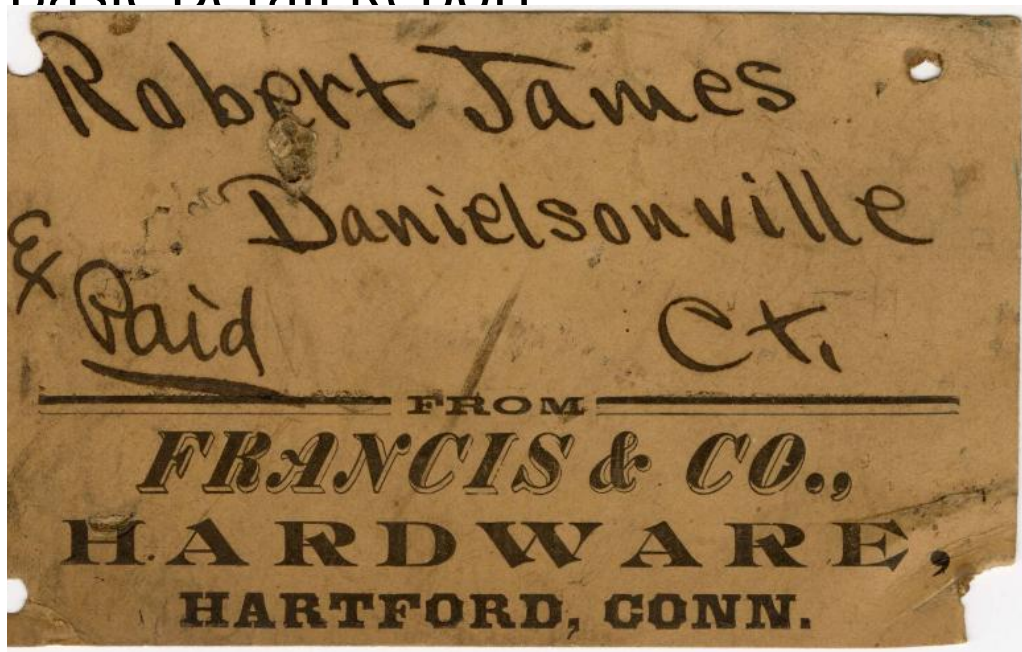 Robert James
Danielsonville
Ex Paid Ct.
FROM
FRANCIS & CO.,
HARDWARE,
HARTFORD, CONN.